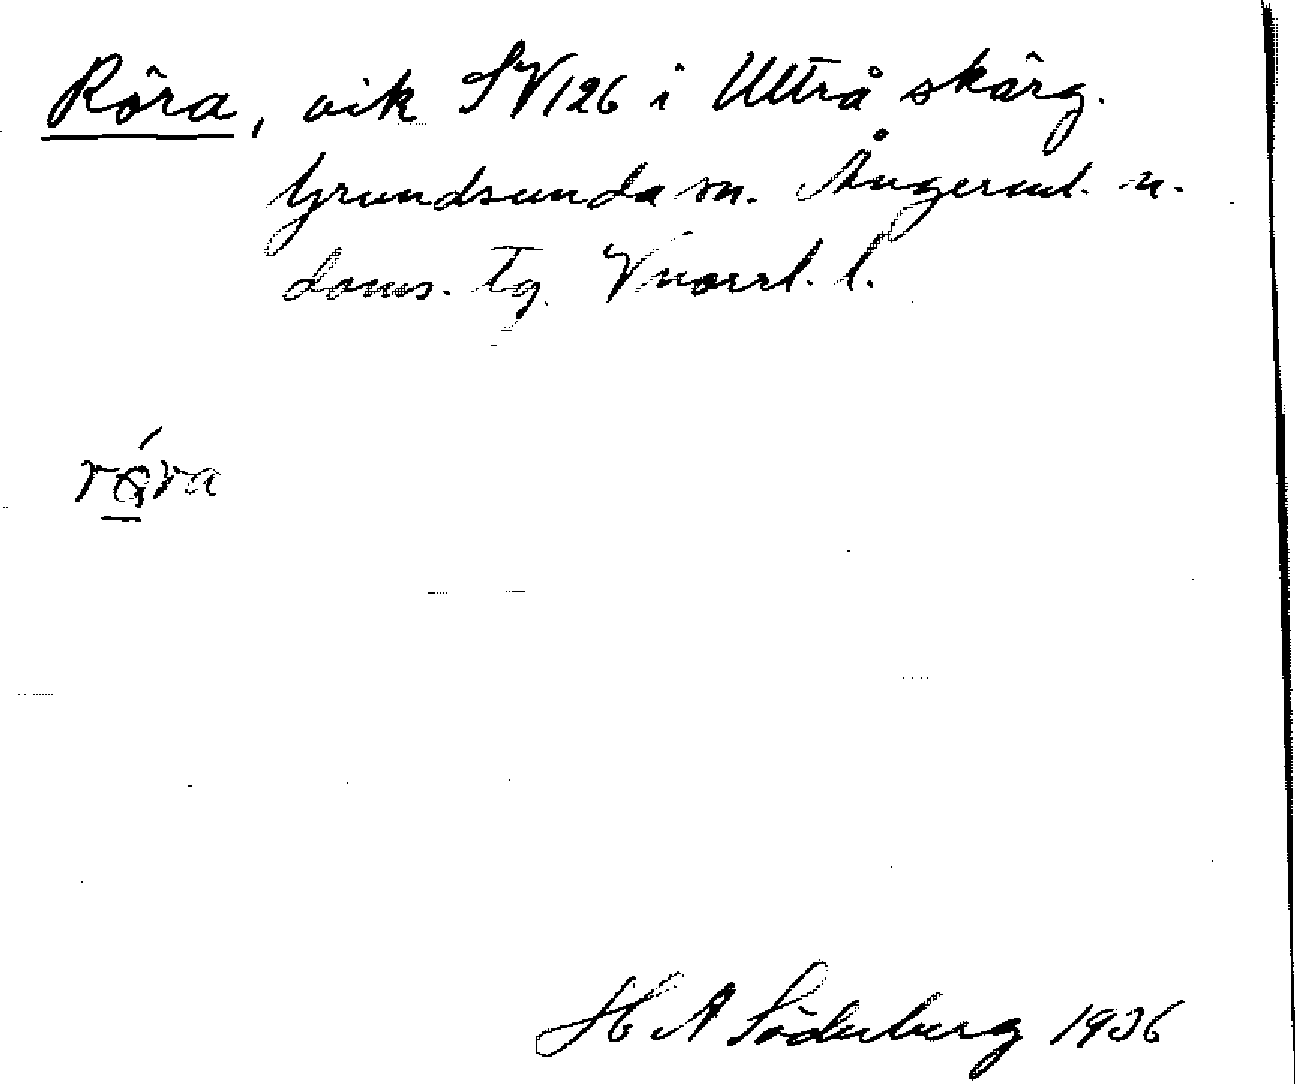 Röra, vik SV 126 i Ulträ skärg.
Grundsunda sn. Ångerml. n.
doms. tg. Vnorrl. l.
röra
H A Söderberg 1936